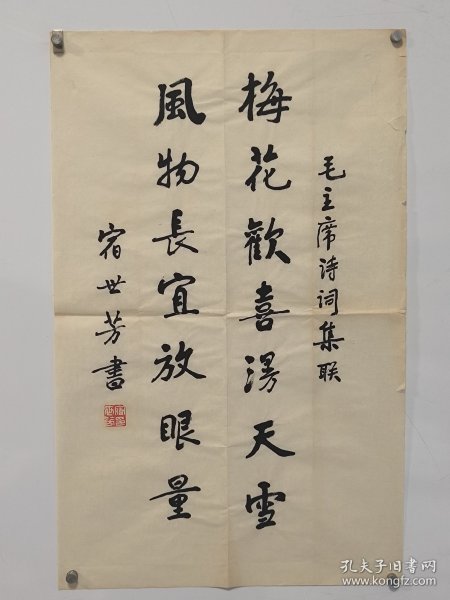 毛主席诗词集联
梅花歡喜漫天雪
風物長宜放眼量
宿世芳書
孔夫子旧书网
www.kongfz.com